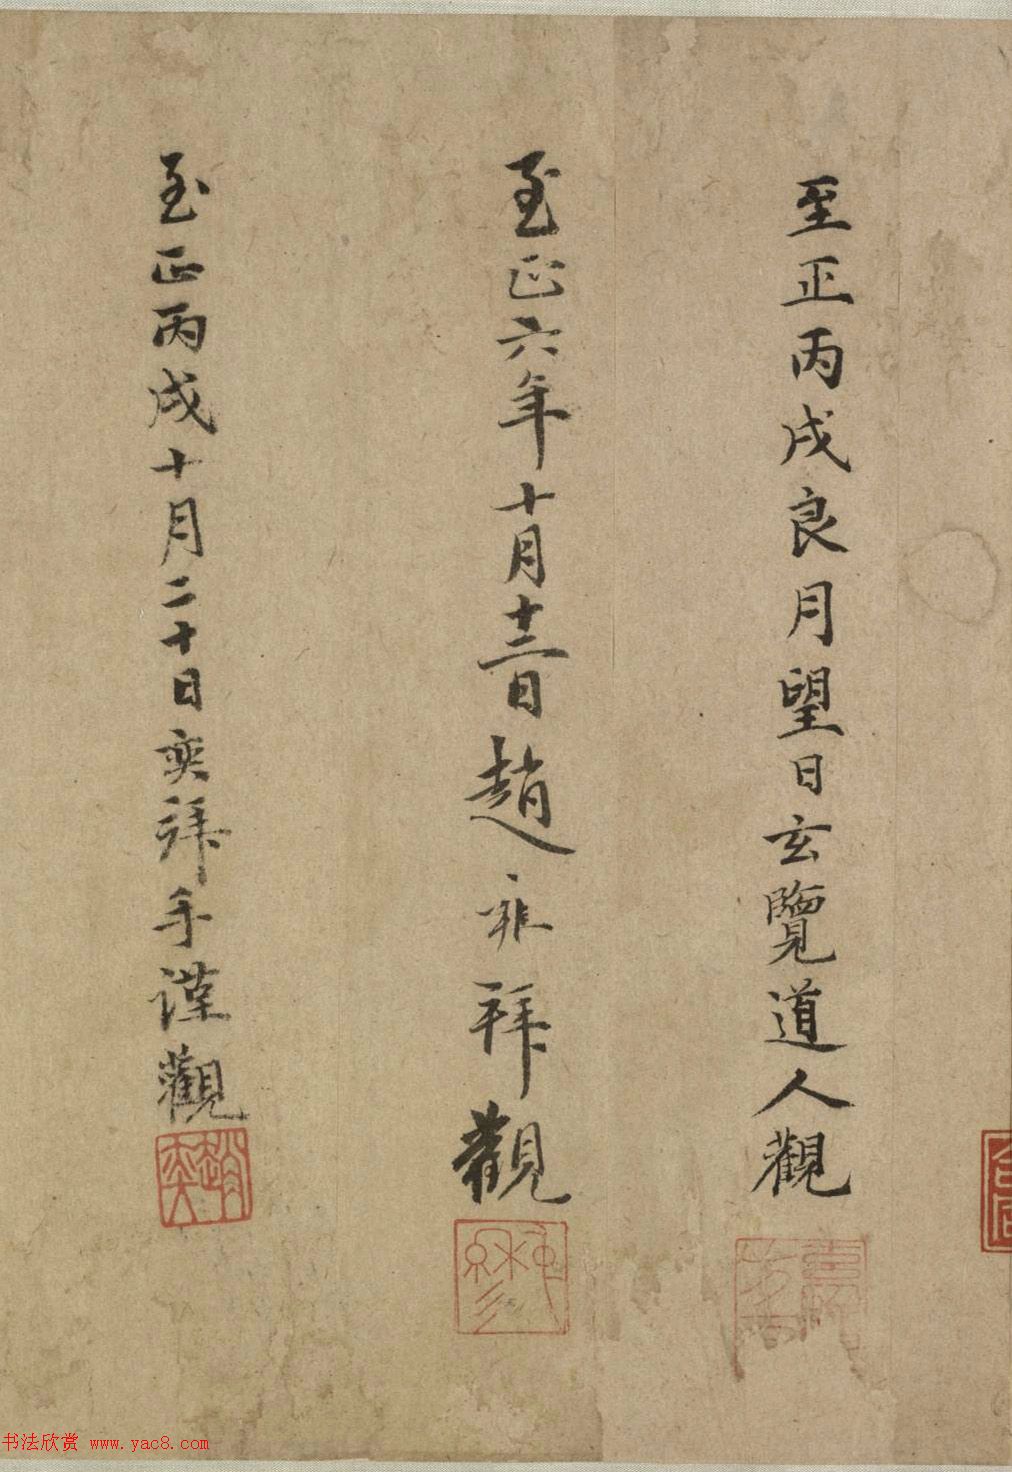 至正丙戌良月望日玄覽道人觀
至正六年十月十二日趙雍拜觀
至正丙戌十月二十日奕拜手謹觀
趙奕
书法欣赏 www.yac8.com